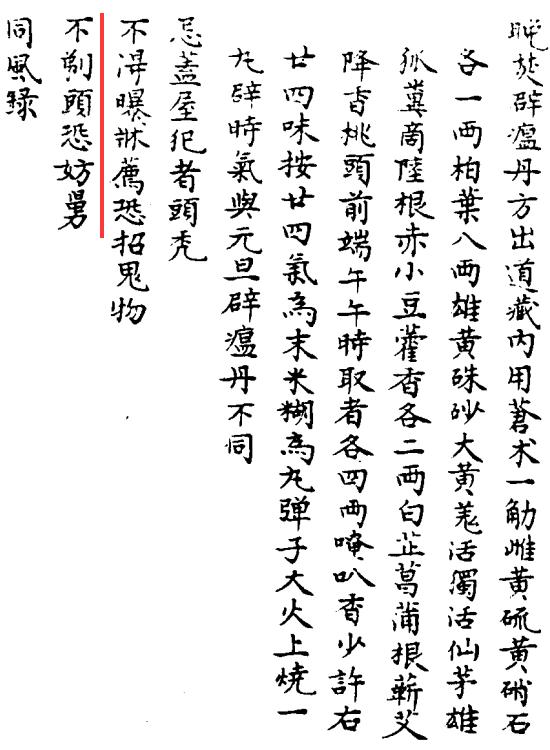 晚焚辟瘟丹方出道藏內用蒼朮一觔雌黃硫黃硝石
各一兩柏葉八兩雄黃硃砂大黃羗活獨活仙茅雄
狐糞商陸根赤小豆藿香各二兩白芷菖蒲根蘄艾
降香桃頭前端午午時取者各四兩唵叭香少許右
廿四味按廿四氣為末米糊為丸彈子大火上燒一
丸辟時氣與元旦辟瘟丹不同
忌蓋屋犯者頭禿
不淂曝牀薦恐招鬼物
不剃頭恐妨舅
同風録